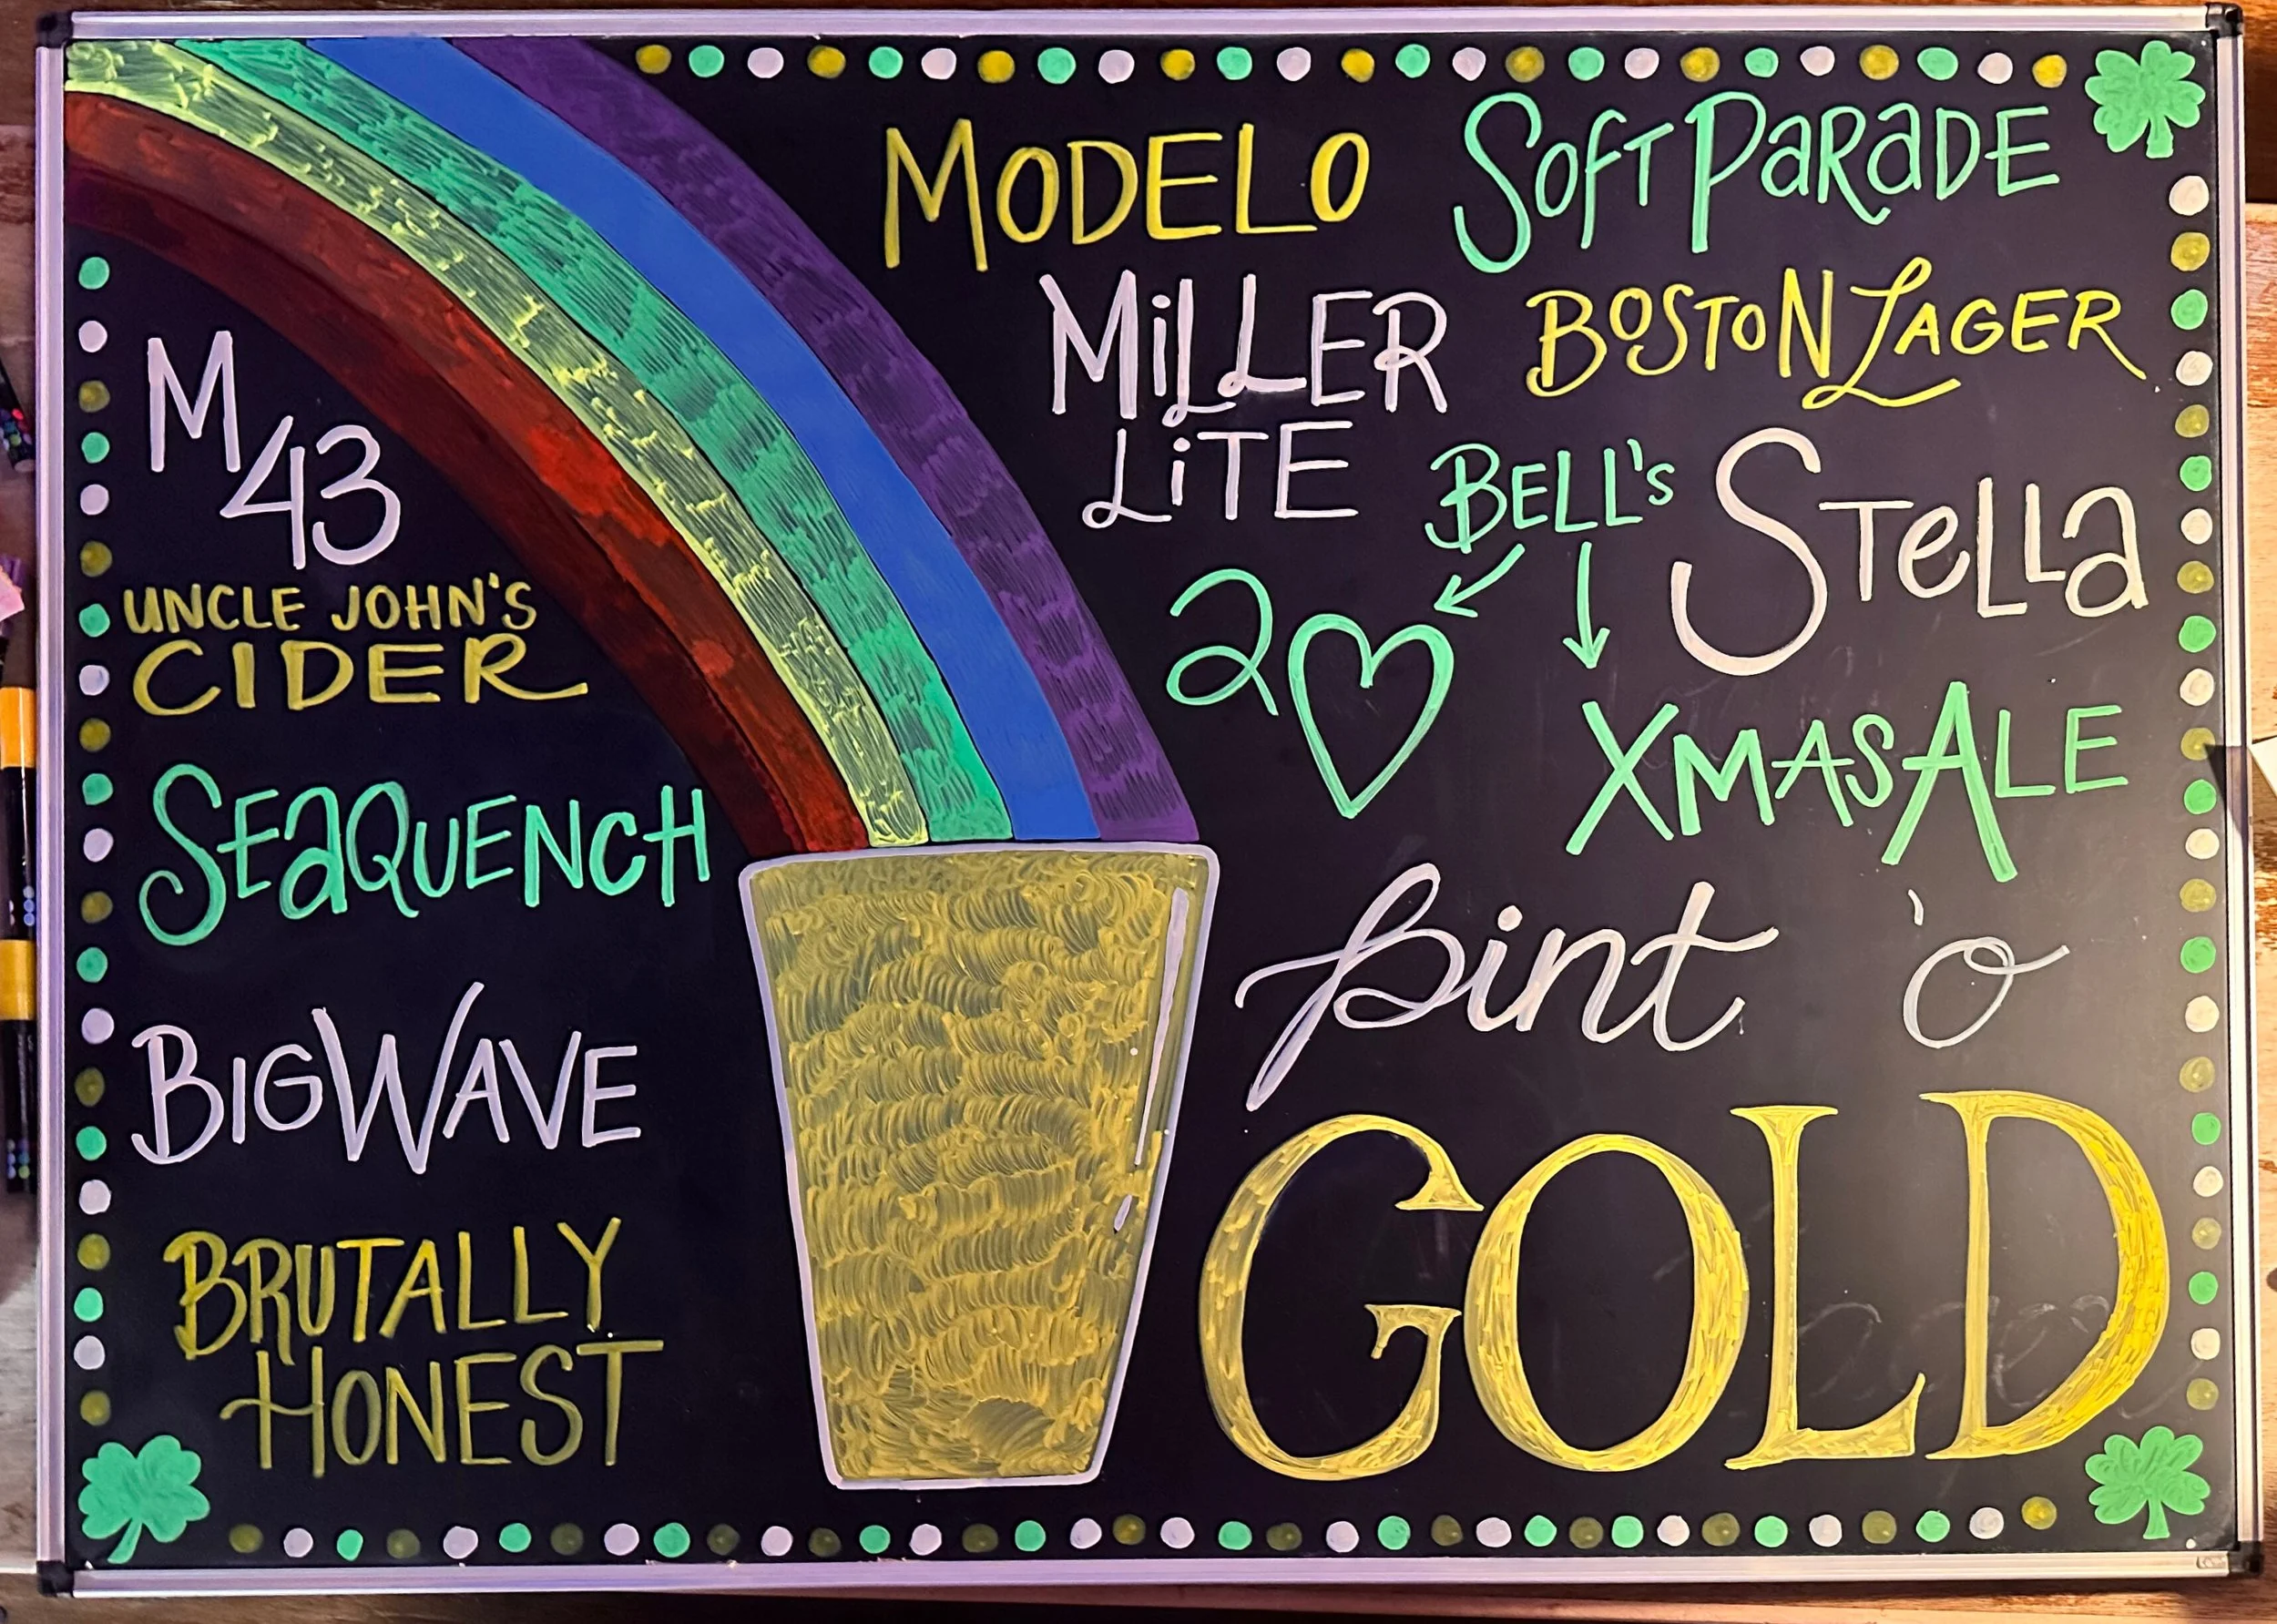 MODELO
SOFT PARADE
MILLER
LITE
BOSTON LAGER
BELL'S
STELLA
2♡
XMAS ALE
pint 'o
GOLD
M
43
UNCLE JOHN'S
CIDER
SEAQUENCH
BIG WAVE
BRUTALLY
HONEST